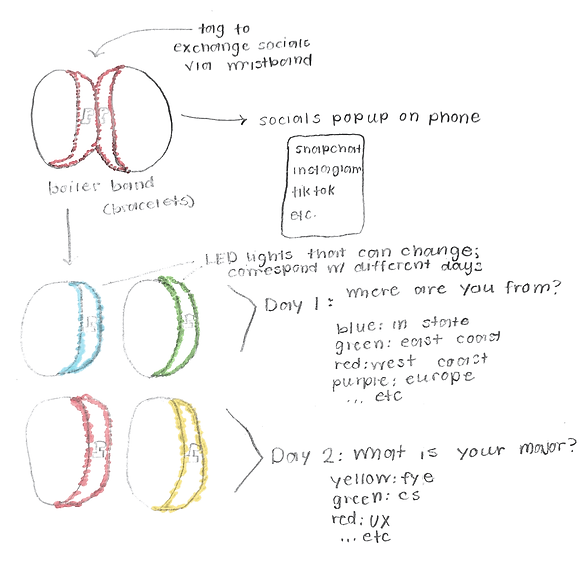 tag to
exchange socials
via wristband
socials popup on phone
snapchat
instagram
tiktok
etc.
boiler band
(bracelets)
LED lights that can change;
correspond w/ different days
Day 1: where are you from?
blue: in state
green: east coast
red: west coast
purple: europe
... etc
Day 2: what is your major?
yellow: fye
green: cs
red: UX
... etc